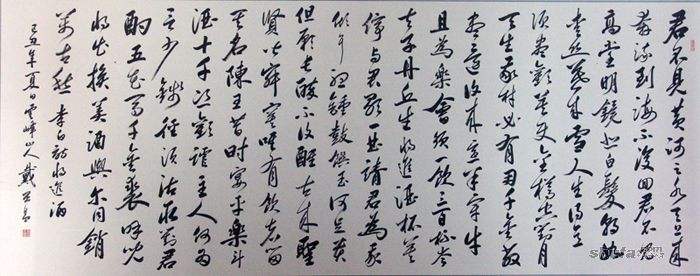 君不見黄河之水天上来
奔流到海不復回君不見
高堂明鏡悲白髮朝如
青丝暮成雪人生得意
須盡歡莫使金樽空對月
天生我材必有用千金散
盡還復来烹羊宰牛
且為樂會須一飲三百杯岑
夫子丹丘生将進酒杯莫
停与君歌一曲請君為我
傾耳聽鐘鼓饌玉何足貴
但願長醉不復醒古来聖
賢皆寂寞唯有飲者留
其名陳王昔時宴平樂斗
酒十千恣歡謔主人何為
言少錢徑須沽取對君
酌五花馬千金裘呼兒
将出换美酒與尔同銷
萬古愁 李白詩将進酒
己丑年夏日雲峰山人戴